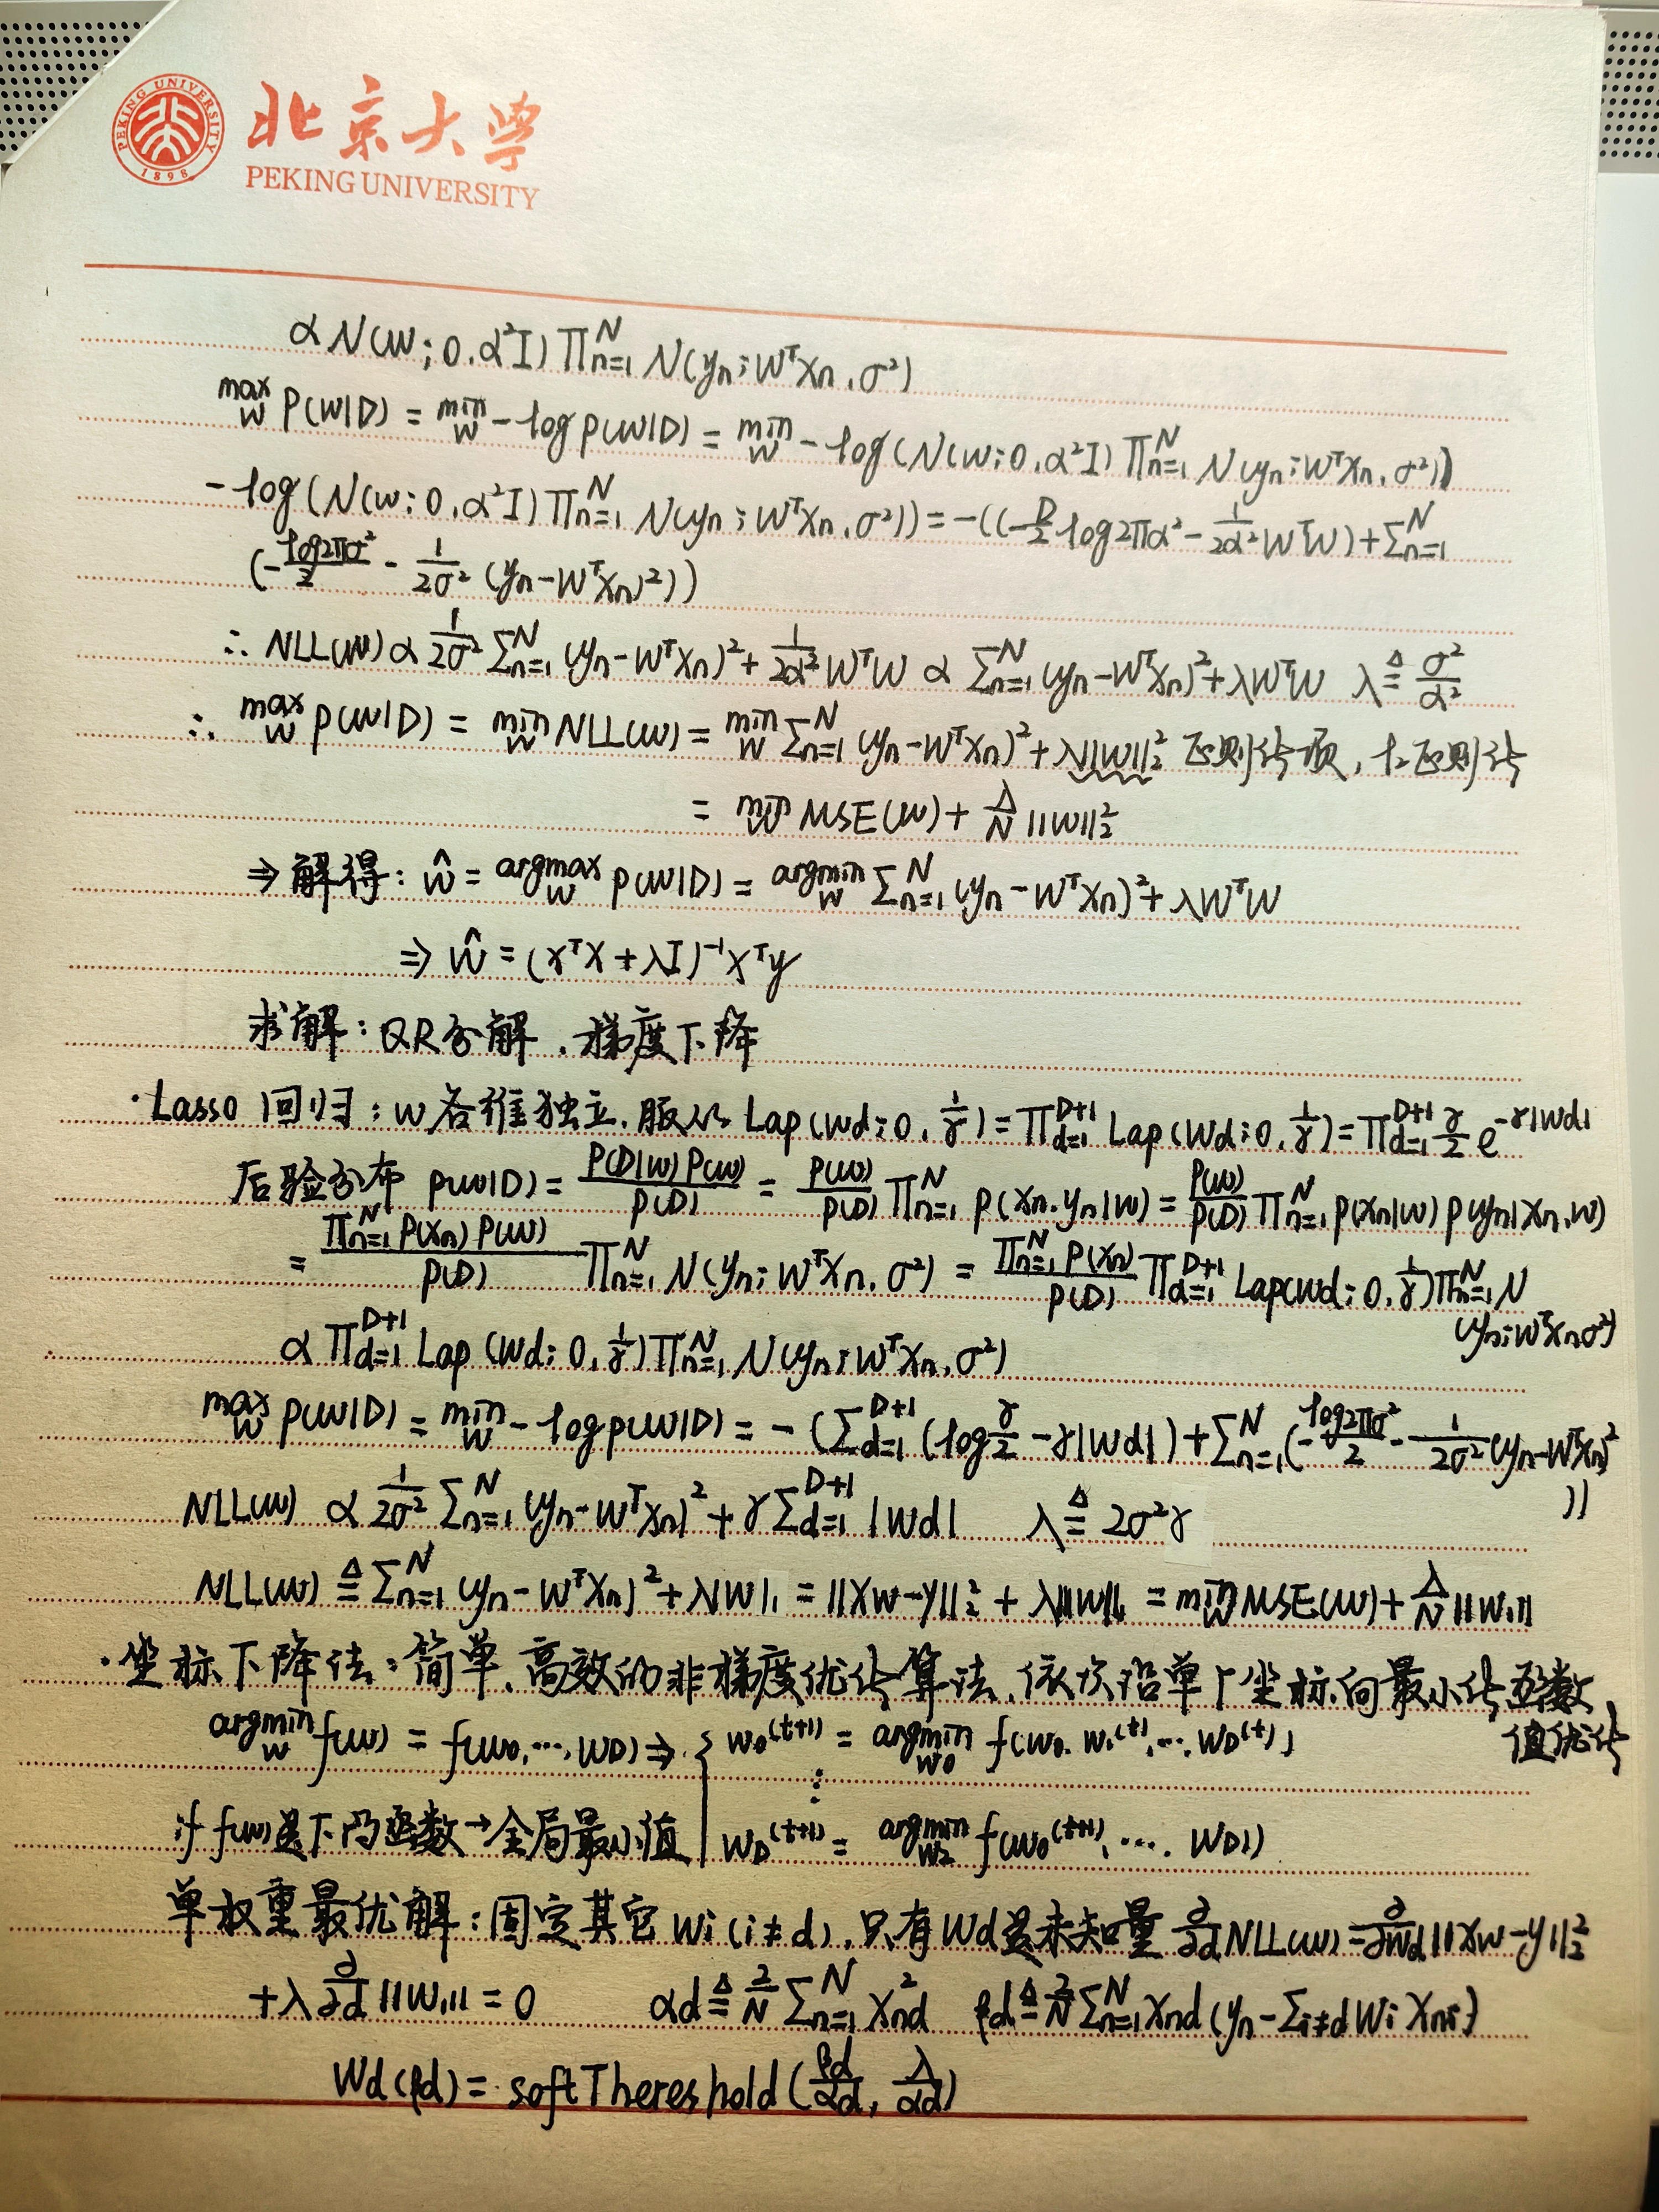 PEKING UNIVERSITY
1898
北京大学
PEKING UNIVERSITY
∝ N(w; 0, α²I) ∏_{n=1}^{N} N(y_n; w^T x_n, σ²)
max_w P(w|D) = min_w -log p(w|D) = min_w -log(N(w; 0, α²I) ∏_{n=1}^{N} N(y_n; w^T x_n, σ²))
-log(N(w; 0, α²I) ∏_{n=1}^{N} N(y_n; w^T x_n, σ²)) = -((-D/2 log2πα² - 1/2α² w^T w) + Σ_{n=1}^{N}
(-log2πσ²/2 - 1/2σ² (y_n - w^T x_n)²))
∴ NLL(w) ∝ 1/2σ² Σ_{n=1}^{N} (y_n - w^T x_n)² + 1/2α² w^T w ∝ Σ_{n=1}^{N} (y_n - w^T x_n)² + λw^T w λ ≜ σ²/α²
∴ max_w p(w|D) = min_w NLL(w) = min_w Σ_{n=1}^{N} (y_n - w^T x_n)² + λ||w||₂² 正则化项, l₂正则化
= min_w MSE(w) + λ/N ||w||₂²
⇒ 解得: ŵ = argmax_w p(w|D) = argmin_w Σ_{n=1}^{N} (y_n - w^T x_n)² + λw^T w
⇒ ŵ = (x^T x + λI)^{-1} x^T y
求解: QR分解, 梯度下降
·Lasso 回归: w各维独立, 服从 Lap(w_d; 0, 1/γ) = ∏_{d=1}^{D+1} Lap(w_d; 0, 1/γ) = ∏_{d=1}^{D+1} γ/2 e^{-γ|w_d|}
后验分布 p(w|D) = P(D|w)P(w)/P(D) = P(w)/P(D) ∏_{n=1}^{N} p(x_n, y_n|w) = P(w)/P(D) ∏_{n=1}^{N} p(x_n|w) p(y_n|x_n, w)
= ∏_{n=1}^{N} P(x_n) P(w)/P(D) ∏_{n=1}^{N} N(y_n; w^T x_n, σ²) = ∏_{n=1}^{N} P(x_n)/P(D) ∏_{d=1}^{D+1} Lap(w_d; 0, 1/γ) ∏_{n=1}^{N} N
(y_n; w^T x_n, σ²)
∝ ∏_{d=1}^{D+1} Lap(w_d; 0, 1/γ) ∏_{n=1}^{N} N(y_n; w^T x_n, σ²)
max_w p(w|D) = min_w -log p(w|D) = -(Σ_{d=1}^{D+1} (log γ/2 - γ|w_d|) + Σ_{n=1}^{N} (-log2πσ²/2 - 1/2σ² (y_n - w^T x_n)²
))
NLL(w) ∝ 1/2σ² Σ_{n=1}^{N} (y_n - w^T x_n)² + γ Σ_{d=1}^{D+1} |w_d| λ ≜ 2σ²γ
NLL(w) ≜ Σ_{n=1}^{N} (y_n - w^T x_n)² + λ|w|₁ = ||Xw-y||₂² + λ||w||₁ = min_w MSE(w) + λ/N ||w₁||
·坐标下降法: 简单, 高效的非梯度优化算法, 依次沿单个坐标向最小化函数
值优化
argmin_w f(w) = f(w₀, ..., w_D) ⇒ { w₀^{(t+1)} = argmin_{w₀} f(w₀, w₁^{(t)}, ..., w_D^{(t)})
⋮
if f(w)是下凸函数→全局最小值 w_D^{(t+1)} = argmin_{w₂} f(w₀^{(t+1)}, ..., w_D))
单权重最优解: 固定其它 w_i (i≠d), 只有w_d是未知量 ∂/∂d NLL(w) = ∂/∂w_d ||Xw-y||₂²
+ λ ∂/∂d ||w₁|| = 0 α_d ≜ 2/N Σ_{n=1}^{N} x_{nd}² ρ_d ≜ 2/N Σ_{n=1}^{N} x_{nd} (y_n - Σ_{i≠d} w_i x_{ni})
w_d(ρ_d) = softThereshold(ρ_d/α_d, λ/α_d)